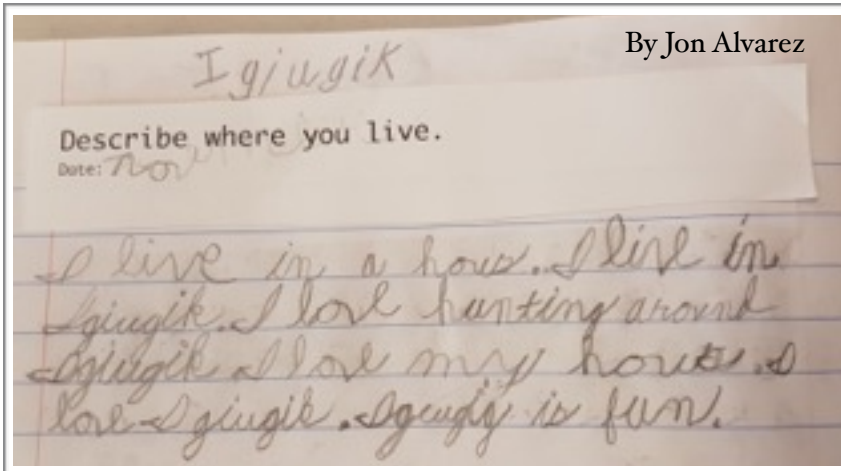 By Jon Alvarez
Igiugik
Describe where you live.
Date: Nov
I live in a hous. I live in
Igiugik. I love hunting around
Igiugik I love my hous. I
love Igiugik. Igiugig is fun.